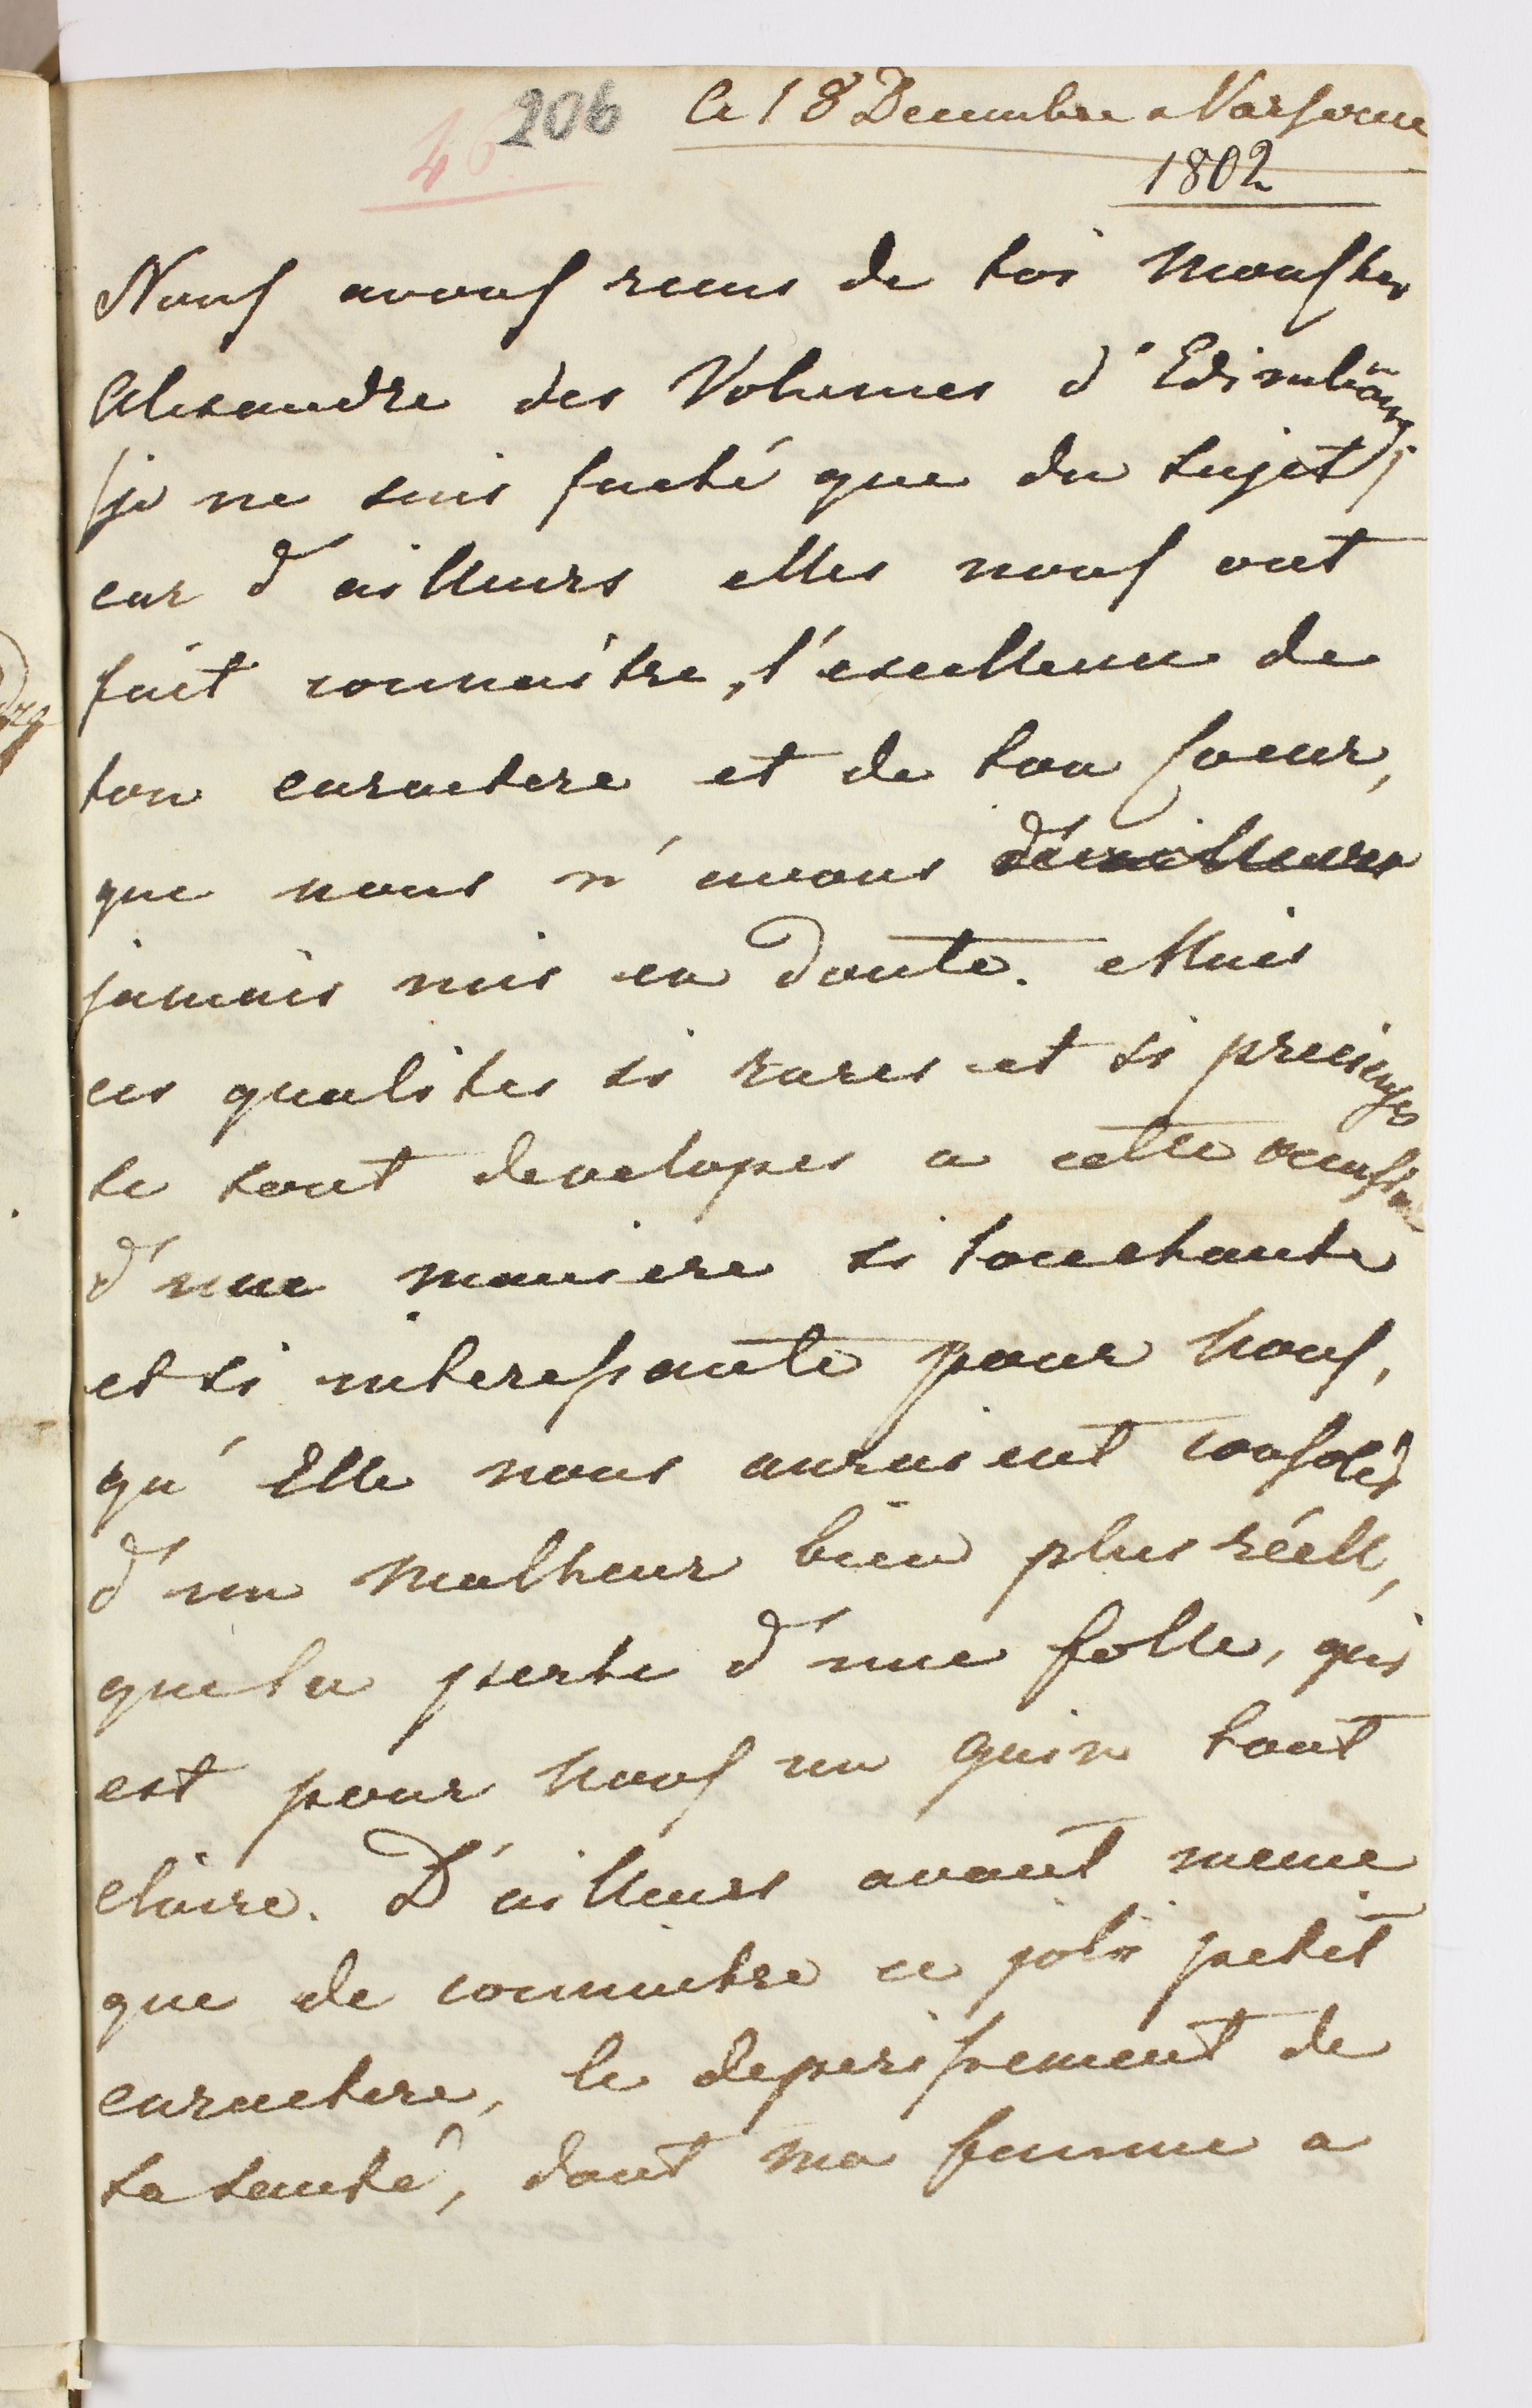 46 206 Ce 18 Decembre a Varsovie
1802
Nous avons recus de toi Monsster
Alexandre des Volumes d'Edimbourg
(je ne suis faché que du sujet)
car d'ailleurs elles nous ont
fait connaitre, l'excellence de
ton caractere et de ton Coeur,
que nous n'avons d'ailleurs
jamais mis en doute. Mais
ces qualites si rares et si precieuses
se sont developes a cette occasion
d'une maniere si touchante
et si interessante pour nous,
qu'Elle nous auraient consolés
d'un malheur bien plus réell,
que la perte d'une folle, qui
est pour nous un gain tout
claire. D'ailleurs avant meme
que de connaitre ce joli petit
caractere, le deperissement de
sa santé, dont ma femme a